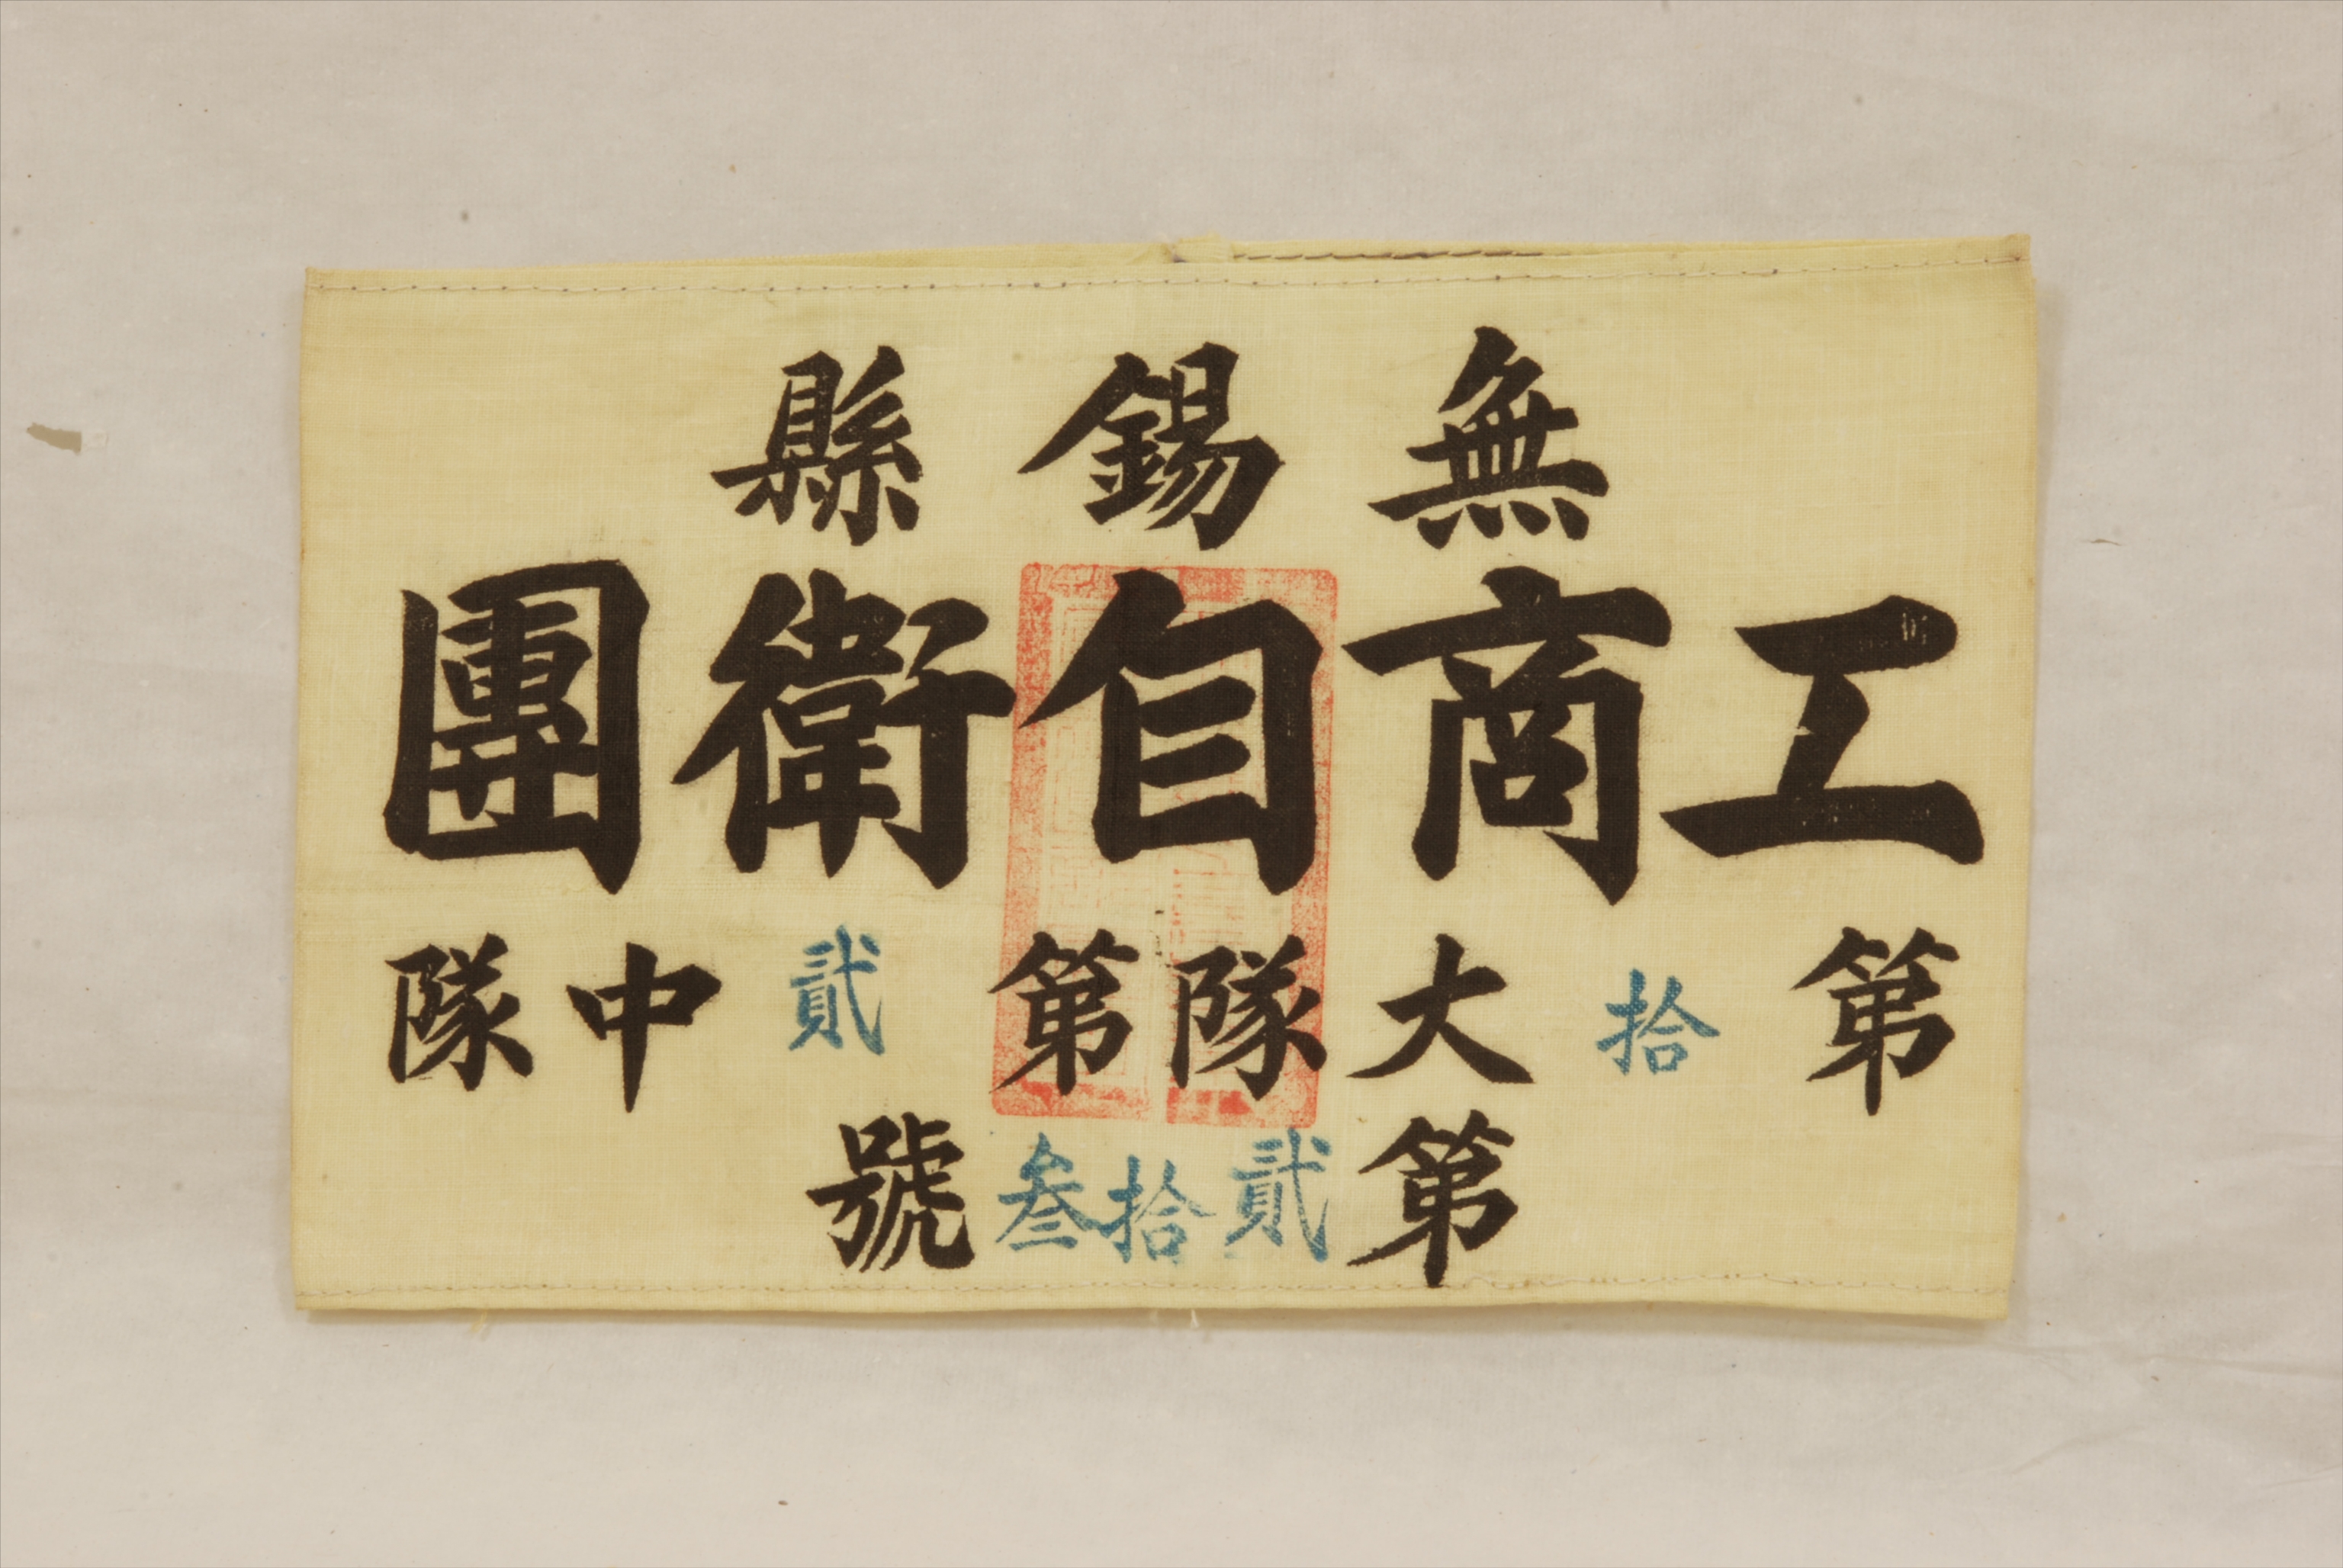 無錫縣
工商自衛團
第拾大隊第貳中隊
第貳拾叁號